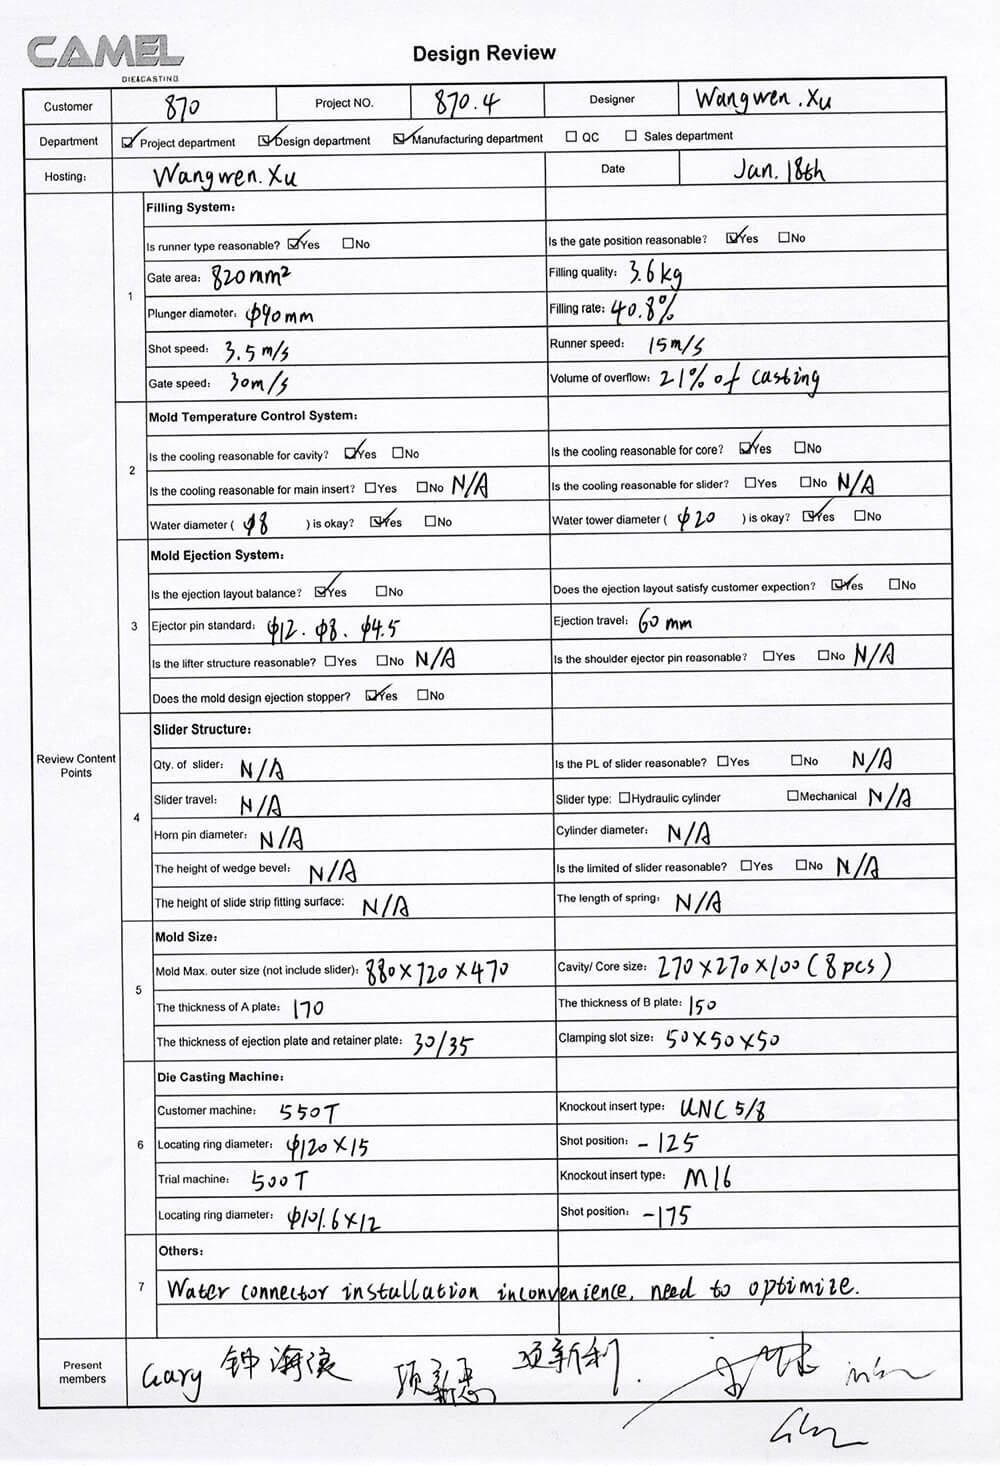 CAMEL
DIE&CASTING
Design Review
Customer 870 Project NO. 870.4 Designer Wangwen.Xu
Department ☑ Project department ☑ Design department ☑ Manufacturing department ☐ QC ☐ Sales department
Hosting: Wangwen.Xu Date Jan. 18th
Review Content Points
1 Filling System:
Is runner type reasonable? ☑Yes ☐No Is the gate position reasonable? ☑Yes ☐No
Gate area: 820mm² Filling quality: 3.6kg
Plunger diameter: φ90mm Filling rate: 40.8%
Shot speed: 3.5m/s Runner speed: 15m/s
Gate speed: 30m/s Volume of overflow: 21% of casting
2 Mold Temperature Control System:
Is the cooling reasonable for cavity? ☑Yes ☐No Is the cooling reasonable for core? ☑Yes ☐No
Is the cooling reasonable for main insert? ☐Yes ☐No N/A Is the cooling reasonable for slider? ☐Yes ☐No N/A
Water diameter ( φ8 ) is okay? ☑Yes ☐No Water tower diameter ( φ20 ) is okay? ☑Yes ☐No
3 Mold Ejection System:
Is the ejection layout balance? ☑Yes ☐No Does the ejection layout satisfy customer expection? ☑Yes ☐No
Ejector pin standard: φ12. φ8. φ4.5 Ejection travel: 60 mm
Is the lifter structure reasonable? ☐Yes ☐No N/A Is the shoulder ejector pin reasonable? ☐Yes ☐No N/A
Does the mold design ejection stopper? ☑Yes ☐No
4 Slider Structure:
Qty. of slider: N/A Is the PL of slider reasonable? ☐Yes ☐No N/A
Slider travel: N/A Slider type: ☐Hydraulic cylinder ☐Mechanical N/A
Horn pin diameter: N/A Cylinder diameter: N/A
The height of wedge bevel: N/A Is the limited of slider reasonable? ☐Yes ☐No N/A
The height of slide strip fitting surface: N/A The length of spring: N/A
5 Mold Size:
Mold Max. outer size (not include slider): 880×720×470 Cavity/ Core size: 270×270×100(8pcs)
The thickness of A plate: 170 The thickness of B plate: 150
The thickness of ejection plate and retainer plate: 30/35 Clamping slot size: 50×50×50
6 Die Casting Machine:
Customer machine: 550T Knockout insert type: UNC 5/8
Locating ring diameter: φ120×15 Shot position: -125
Trial machine: 500T Knockout insert type: M16
Locating ring diameter: φ101.6×12 Shot position: -175
7 Others:
Water connector installation inconvenience, need to optimize.
Present members Gary 钟海 项新 项新利